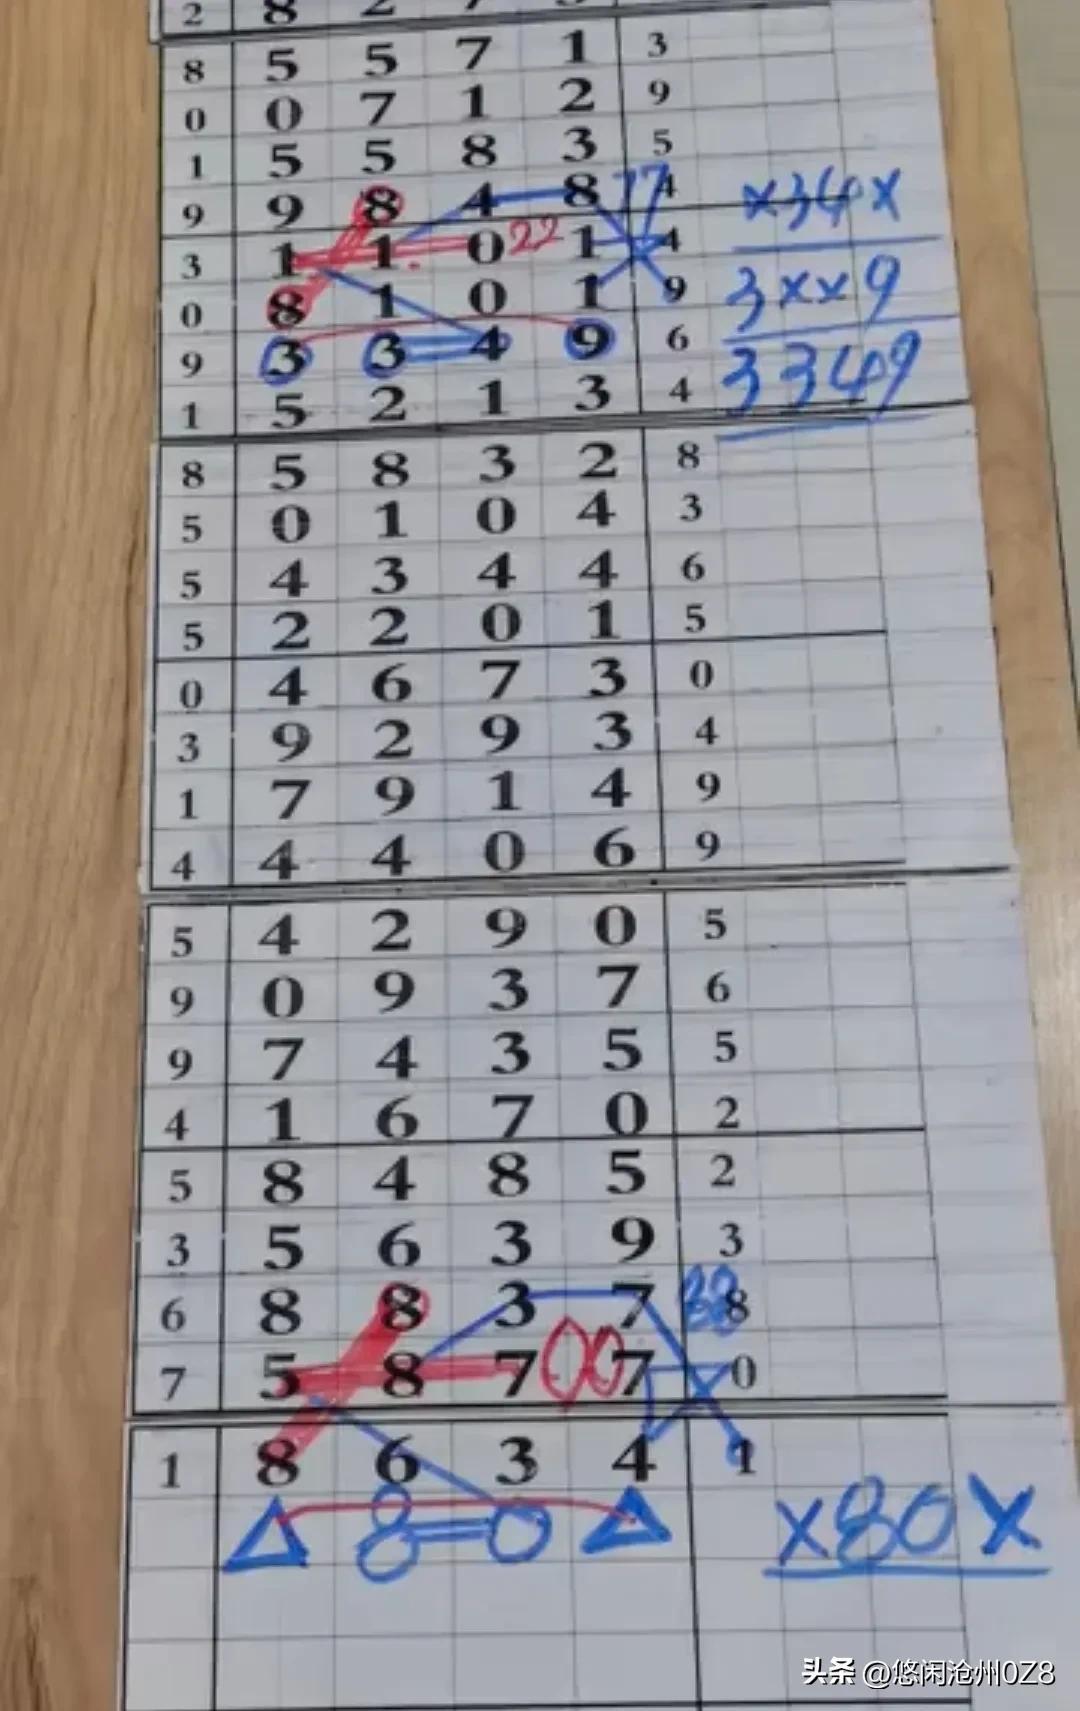 2 8 2 7
8 5 5 7 1 3
0 0 7 1 2 9
1 5 5 8 3 5
9 9 8 4 8 77 4 ×34×
3 1 1 0 22 1 4
0 8 1 0 1 9 3××9
9 3 3 4 9 6 3349
1 5 2 1 3 4
8 5 8 3 2 8
5 0 1 0 4 3
5 4 3 4 4 6
5 2 2 0 1 5
0 4 6 7 3 0
3 9 2 9 3 4
1 7 9 1 4 9
4 4 4 0 6 9
5 4 2 9 0 5
9 0 9 3 7 6
9 7 4 3 5 5
4 1 6 7 0 2
5 8 4 8 5 2
3 5 6 3 9 3
6 8 8 3 7 33 8
7 5 8 7 00 7 0
1 8 6 3 4 1
△ 8=0 △ ×80×
头条 @悠闲沧州0Z8